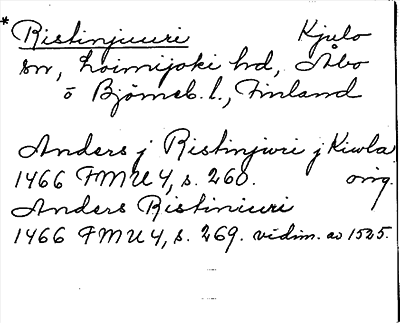 * Ristinjuuri Kjulo
sn, Loimijoki hd, Åbo
o Björneb. l., Finland
Anders j Ristinjwri j Kiwla
1466 FMU 4, s. 260. orig.
Anders Ristiniuri
1466 FMU 4, s. 269. vidim. av 1525.